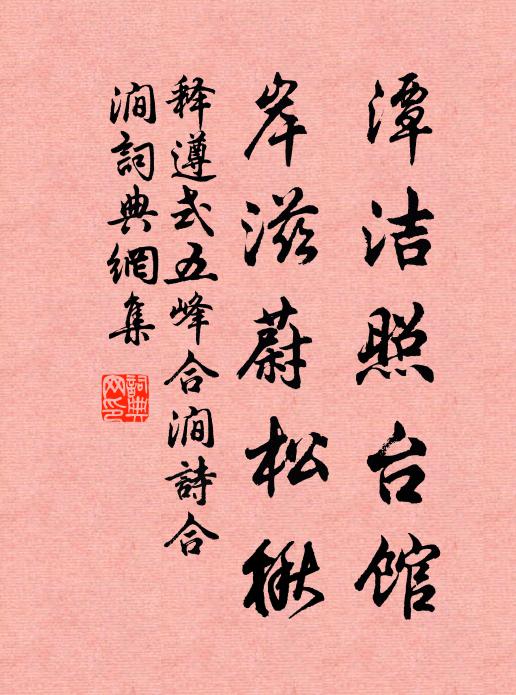 潭洁照台馆
岸滋蔚松楸
释遵式五峰合涧詩合
涧詞典網集
詞典网印